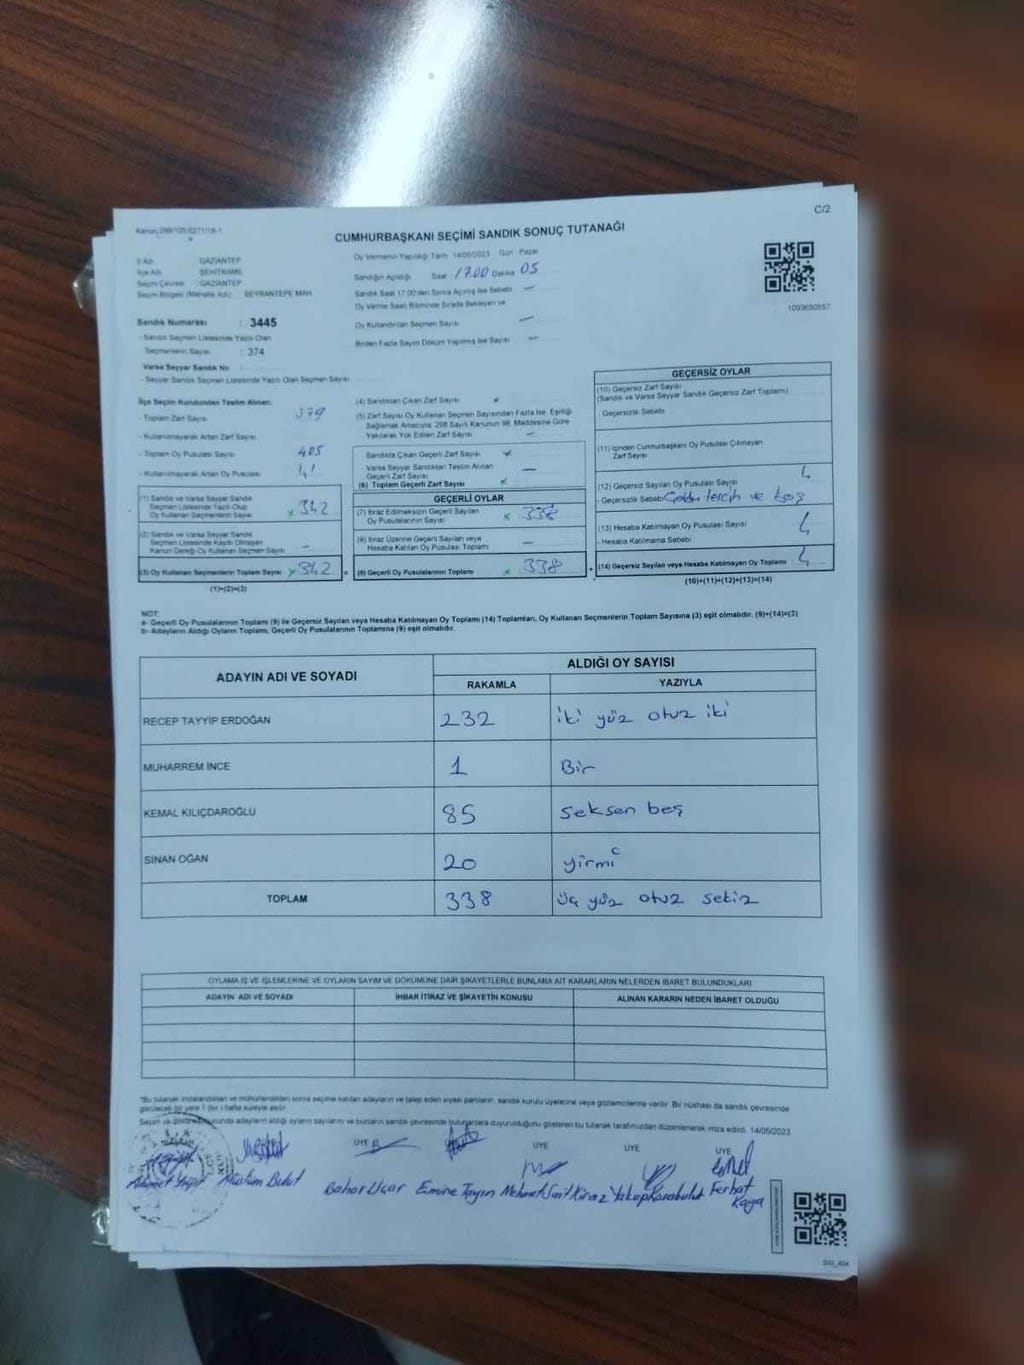 C/2
Kanun
CUMHURBAŞKANI SEÇİMİ SANDIK SONUÇ TUTANAĞI
İl Adı : GAZİANTEP
İlçe Adı : ŞEHİTKAMİL
Seçim Çevresi : GAZİANTEP
Seçim Bölgesi (Mahalle Adı) : BEYRANTEPE MAH.
Oy Vermenin Yapıldığı Tarih 14/05/2023 Gün Pazar
Sandığın Açıldığı Saat 17.00 Dakika 05
Sandık Saat 17.00'den Sonra Açılmış İse Sebebi —
Oy Verme Saati Bitiminde Sırada Bekleyen ve
Oy Kullandırılan Seçmen Sayısı —
Birden Fazla Sayım Döküm Yapılmış İse Sayısı —
1093650557
Sandık Numarası : 3445
- Sandık Seçmen Listesinde Yazılı Olan
Seçmenlerin Sayısı : 374
Varsa Seyyar Sandık No
- Seyyar Sandık Seçmen Listesinde Yazılı Olan Seçmen Sayısı
İlçe Seçim Kurulundan Teslim Alınan:
- Toplam Zarf Sayısı 379
- Kullanılmayarak Artan Zarf Sayısı
- Toplam Oy Pusulası Sayısı 405
- Kullanılmayarak Artan Oy Pusulası
(1) Sandık ve Varsa Seyyar Sandık
Seçmen Listesinde Yazılı Olup
Oy Kullanan Seçmenlerin Sayısı 342
(2) Sandık ve Varsa Seyyar Sandık
Seçmen Listesinde Kayıtlı Olmayan
Kanun Gereği Oy Kullanan Seçmen Sayısı —
(3) Oy Kullanan Seçmenlerin Toplam Sayısı 342
(1)+(2)=(3)
(4) Sandıktan Çıkan Zarf Sayısı
(5) Zarf Sayısı Oy Kullanan Seçmen Sayısından Fazla İse, Eşitliği
Sağlamak Amacıyla; 298 Sayılı Kanunun 98. Maddesine Göre
Yakılarak Yok Edilen Zarf Sayısı —
Sandıkta Çıkan Geçerli Zarf Sayısı
Varsa Seyyar Sandıktan Teslim Alınan
Geçerli Zarf Sayısı —
(6) Toplam Geçerli Zarf Sayısı
GEÇERLİ OYLAR
(7) İtiraz Edilmeksizin Geçerli Sayılan
Oy Pusulalarının Sayısı 338
(8) İtiraz Üzerine Geçerli Sayılan veya
Hesaba Katılan Oy Pusulası Toplamı —
(9) Geçerli Oy Pusulalarının Toplamı 338
GEÇERSİZ OYLAR
(10) Geçersiz Zarf Sayısı
(Sandık ve Varsa Seyyar Sandık Geçersiz Zarf Toplamı)
- Geçersizlik Sebebi
(11) İçinden Cumhurbaşkanı Oy Pusulası Çıkmayan
Zarf Sayısı
(12) Geçersiz Sayılan Oy Pusulası Sayısı 4
- Geçersizlik Sebebi tercih ve boş
(13) Hesaba Katılmayan Oy Pusulası Sayısı
- Hesaba Katılmama Sebebi
(14) Geçersiz Sayılan veya Hesaba Katılmayan Oy Toplamı 4
(10)+(11)+(12)+(13)=(14)
NOT:
a- Geçerli Oy Pusulalarının Toplamı (9) ile Geçersiz Sayılan veya Hesaba Katılmayan Oy Toplamı (14) Toplamları, Oy Kullanan Seçmenlerin Toplam Sayısına (3) eşit olmalıdır. (9)+(14)=(3)
b- Adayların Aldığı Oyların Toplamı, Geçerli Oy Pusulalarının Toplamına (9) eşit olmalıdır.
ADAYIN ADI VE SOYADI
ALDIĞI OY SAYISI
RAKAMLA YAZIYLA
RECEP TAYYİP ERDOĞAN 232 iki yüz otuz iki
MUHARREM İNCE 1 Bir
KEMAL KILIÇDAROĞLU 85 seksen beş
SİNAN OĞAN 20 yirmi
TOPLAM 338 üç yüz otuz sekiz
OYLAMA İŞ VE İŞLEMLERİNE VE OYLARIN SAYIM VE DÖKÜMÜNE DAİR ŞİKAYETLERLE BUNLARA AİT KARARLARIN NELERDEN İBARET BULUNDUKLARI
ADAYIN ADI VE SOYADI İHBAR İTİRAZ VE ŞİKAYETİN KONUSU ALINAN KARARIN NEDEN İBARET OLDUĞU
*Bu tutanak imzalandıktan ve mühürlendikten sonra seçime katılan adayların ve talep eden siyasi partilerin, sandık kurulu üyelerine veya gözlemcilerine verilir. Bir nüshası da sandık çevresinde
görülecek bir yere 1 (bir) hafta süreyle asılır.
Seçim ve sonucunda adayların aldığı oyların sayılarını ve bunların sandık çevresinde bulunanlara duyurulduğunu gösteren bu tutanak tarafımızdan düzenlenerek imza edildi. 14/05/2023
ÜYE ÜYE ÜYE ÜYE
Ahmet Yiğit Müslüm Bulut Bahar Uçar Emine Tayın Mehmet Sait Kiraz Yakup Karabulut Ferhat
Kaya